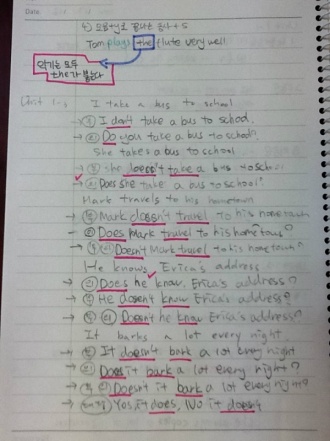 Date
4) 모음+y로 끝나는 동사 + s
Tom plays the flute very well
악기는 모두
the가 붙는다
Unit 1-1. I take a bus to school
→ 부 I don't take a bus to school.
→ 의 Do you take a bus to school?
She takes a bus to school
→ 부 She doesn't take a bus to school
→ 의 Does she take a bus to school?
Mark travels to his hometown
→ 부 Mark doesn't travel to his hometown
→ 의 Does Mark travel to his hometown?
→ 부 의 Doesn't Mark travel to his hometown?
He knows Erica's address
→ 의 Does he know, Erica's address?
→ 부 He doesn't know Erica's address?
→ 부 의 Doesn't he know Erica's address?
It barks a lot every night.
→ 부 It doesn't bark a lot every night
→ 의 Does it bark a lot every night?
→ 부 의 Doesn't it bark a lot every night?
→ Yes, it does, No it doesn't